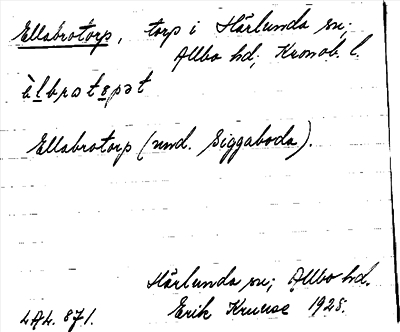 Ellabrotorp, torp i Härlunda sn;
Allbo hd; Kronob. l.
èlbrɷtɷpət
Ellabrotorp (und. Siggaboda).
Härlunda sn; Allbo hd.
LAL. 871. Erik Kruuse 1928.